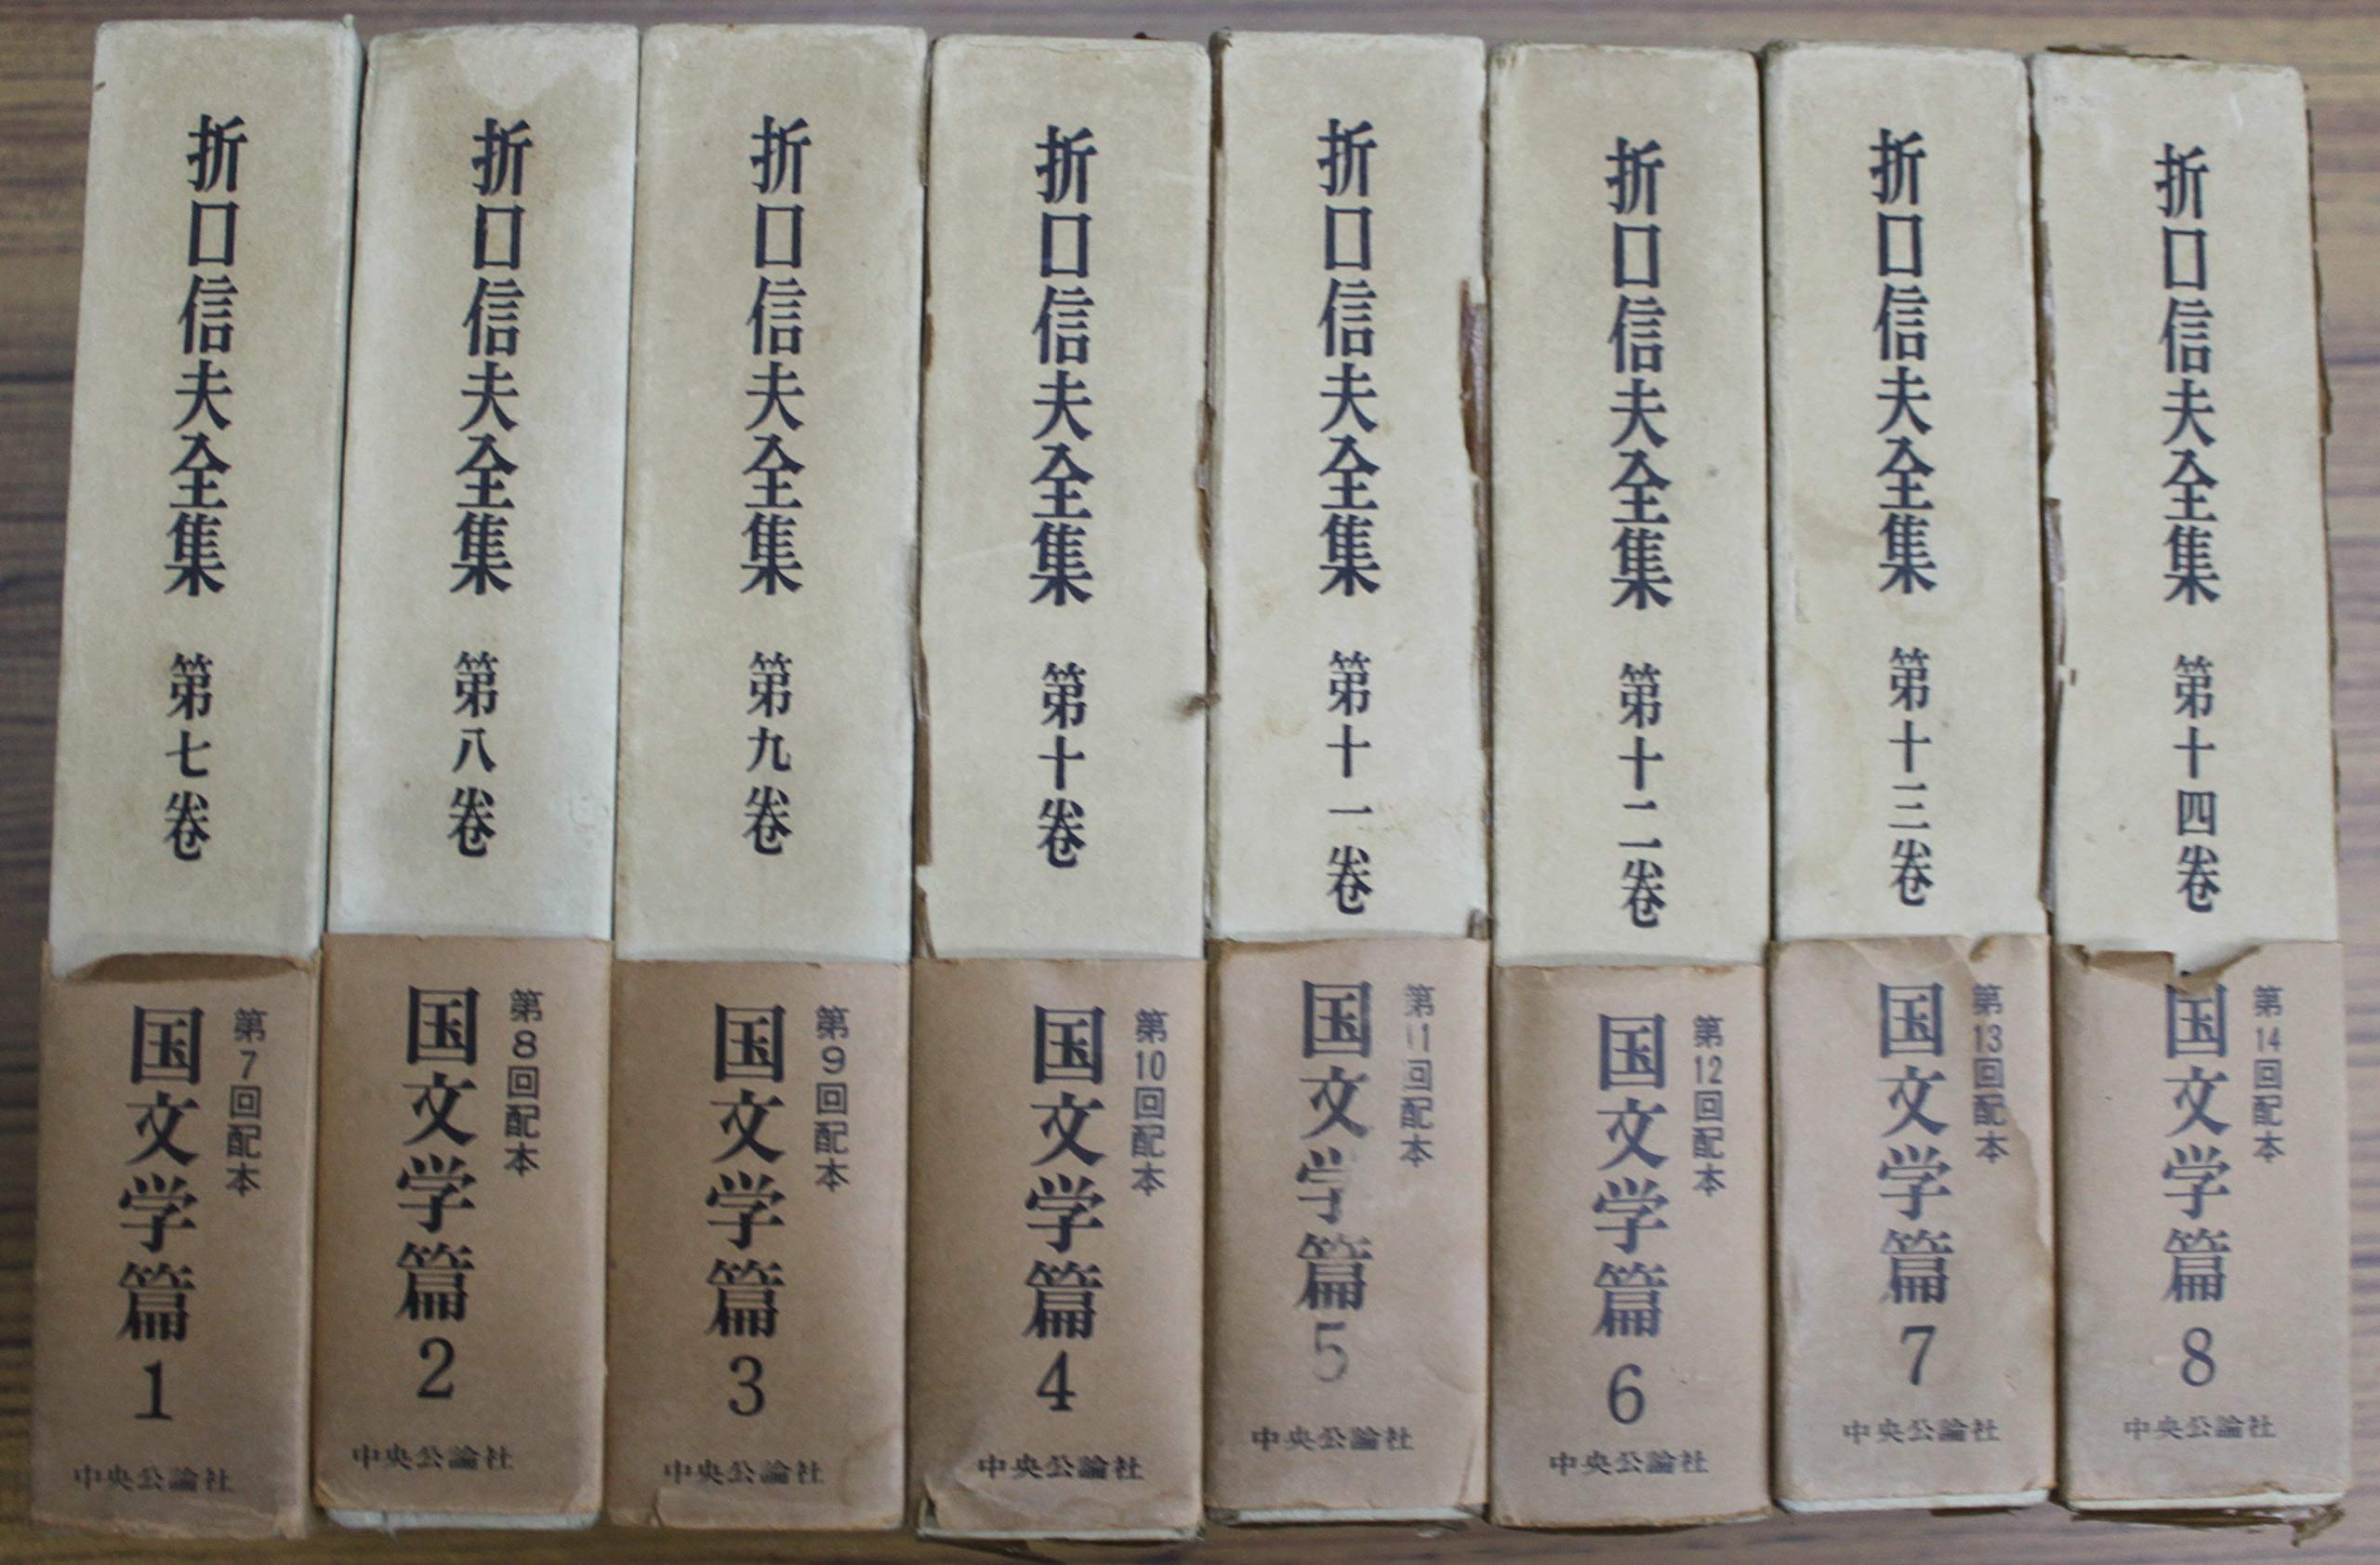 折口信夫全集 第七卷
第7回配本
国文学篇1
中央公論社
折口信夫全集 第八卷
第8回配本
国文学篇2
中央公論社
折口信夫全集 第九卷
第9回配本
国文学篇3
中央公論社
折口信夫全集 第十卷
第10回配本
国文学篇4
中央公論社
折口信夫全集 第十一卷
第11回配本
国文学篇5
中央公論社
折口信夫全集 第十二卷
第12回配本
国文学篇6
中央公論社
折口信夫全集 第十三卷
第13回配本
国文学篇7
中央公論社
折口信夫全集 第十四卷
第14回配本
国文学篇8
中央公論社